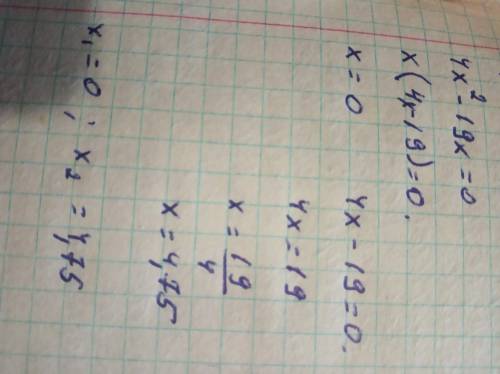 4x² - 19x = 0
x(4x-19)=0.
x = 0    4x - 19 = 0.
4x = 19
x = 19/4
x = 4,75
x₁ = 0; x₂ = 4,75